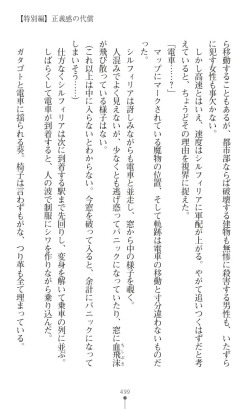 【特別編】正義感の代償
ら移動することもあるが、都市部ならば破壊する建物も無惨に殺害する男性も、いたずら
に犯す女性も事欠かない。
しかし高速とはいえ、速度はシルフィリアに軍配が上がる。やがて追いつくはずだと考
えていると、ちょうどその理由を視界に捉えた。
「電車……？」
マップにマークされている魔物の位置、そして軌跡は電車の移動と寸分違わないもので
あった。
シルフィリアは訝しみながらも電車と並走し、窓から中の様子を覗く。
人混みでよく見えないが、少なくとも逃げ惑ってパニックになっていたり、窓に血飛沫
が飛び散っている様子はない。
（これ以上は中に入らないとわからない。今窓を破って入ると、余計にパニックになって
しまいそう……）
仕方なくシルフィリアは次に到着する駅まで先回りし、変身を解いて乗車の列に並ぶ。
しばらくして電車が到着すると、人の波で制服にシワを作りながら乗り込んだ。
ガタゴトと電車に揺られる葵。椅子は言わずもがな、つり革も全て埋まっています。
499